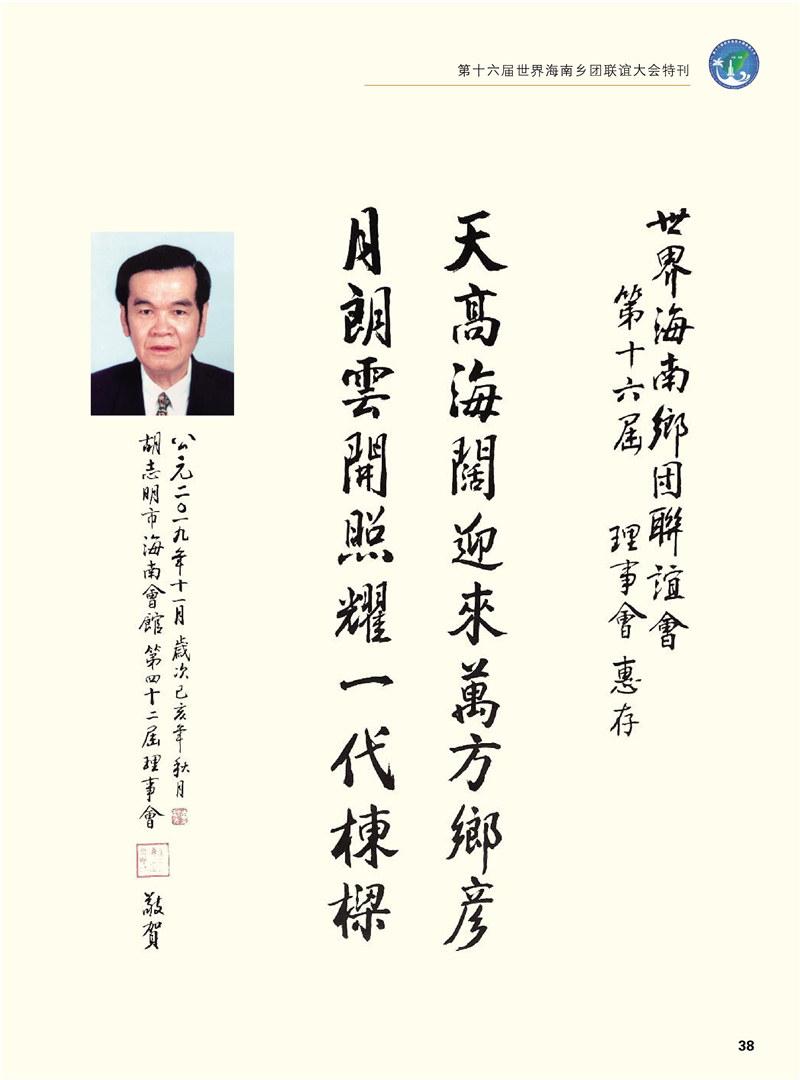 第十六届世界海南乡团联谊大会特刊
世界海南鄉团聯誼會
第十六届 理事會 惠存
天高海闊迎來萬方鄉彦
月朗雲開照耀一代棟樑
公元二〇一九年十一月 歲次己亥年秋月
胡志明市海南會館 第四十二届理事會 敬賀
38